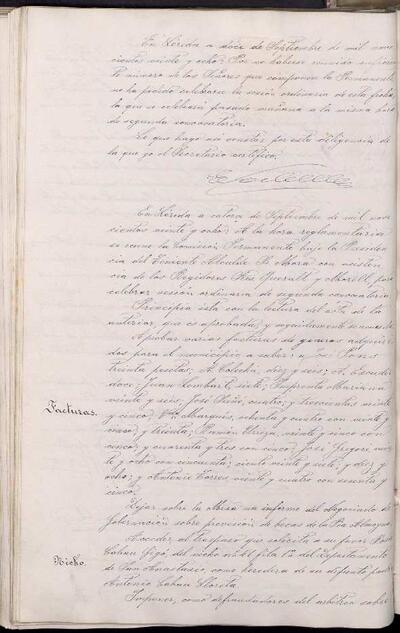 En Lérida a doce de Septiembre de mil nove
cientos veinte y ocho: Por no haberse reunido suficien
te número de los Señores que componen la Permanente
no ha podido celebrarse la sesión ordinaria de esta fecha,
la que se celebrará pasado mañana a la misma hora
de segunda convocatoria.
Lo que hago así constar por esta diligencia de
la que yo el Secretario certifico.
En Lérida a catorce de Septiembre de mil nove
cientos veinte y ocho: A la hora reglamentaria
se reune la Comisión Permanente bajo la Presiden
cia del Teniente Alcalde Sr. Mora con asisten
cia de los Regidores Sres. Queralt y Morell, para
celebrar sesión ordinaria de segunda convocatoria
Principia ésta con la lectura del acta de la
anterior, que es aprobada, y seguidamente se acuerda:
Aprobar varias facturas de géneros adquiri
dos para el municipio a saber:
treinta pesetas; A. diez y seis; A.
doce; Juan siete; Imprenta Mariana
veinte y seis; José cuatro; y trescientas veinte
Facturas.
y cinco; Vda. Marqués, ochenta y cuatro con veinte y
cinco; y treinta; Ramón veinte y cinco con
cinco; y cuarenta y tres con cinco; José
te y ocho con cincuenta; ciento veinte y siete; y diez y
ocho; y Antonio Torres veinte y cuatro con sesenta y
cinco.
Dejar sobre la Mesa un informe del Negociado de
Gobernación sobre provisión de becas de la Pia Almoyna
Acceder al traspaso que solicita a su favor
Nicho.
Cabau Gigó, del nicho nº 61 fila 1ª del Departamento
de San Anastasio, como heredera de su difunto padre
Antonio Cabau Florista.
Imponer, como defraudadores del arbitrio sobre